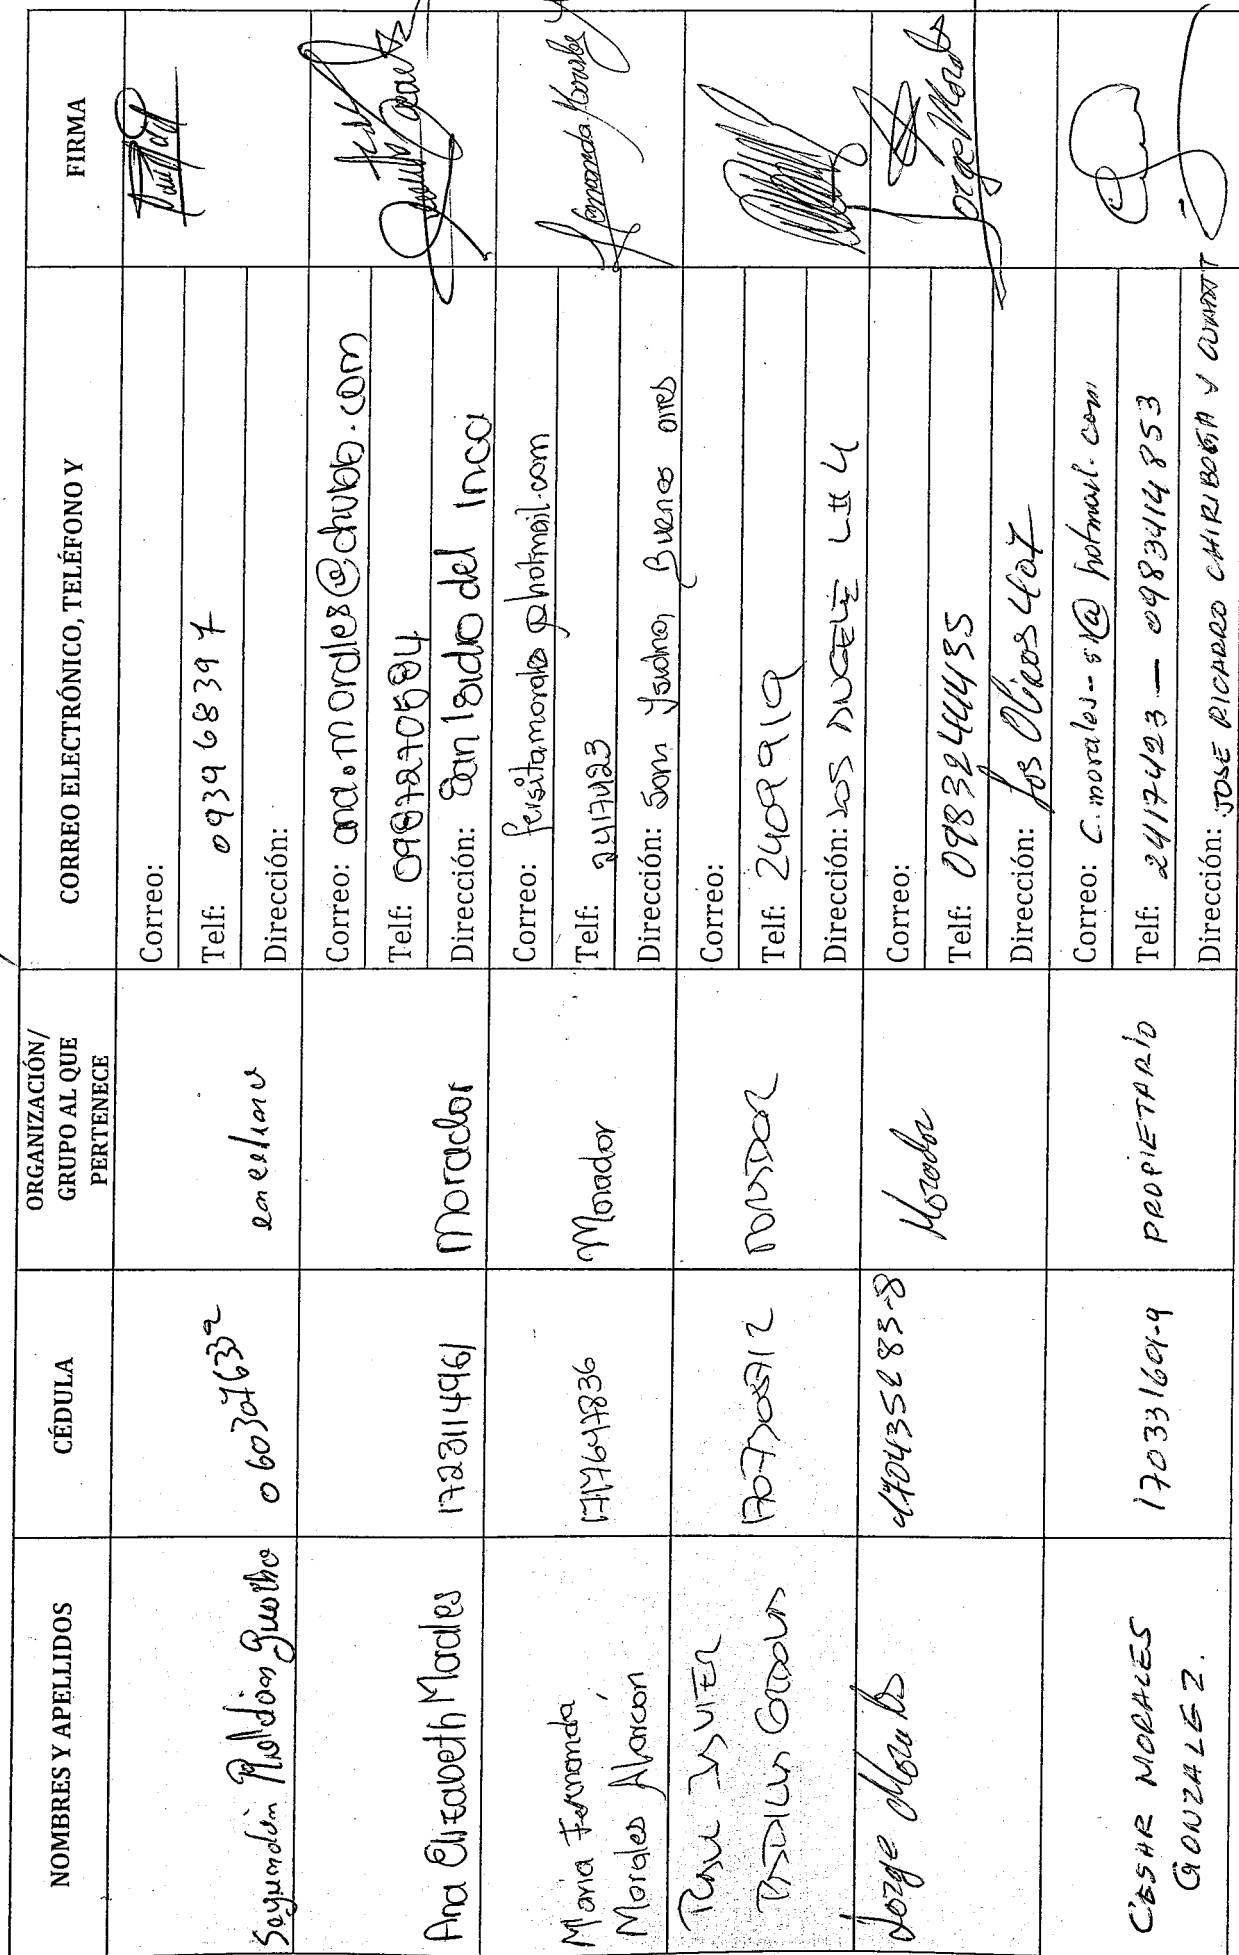 NOMBRES Y APELLIDOS
CÉDULA
ORGANIZACIÓN/
GRUPO AL QUE
PERTENECE
CORREO ELECTRÓNICO, TELÉFONO Y
FIRMA
Roldán
060307633
Correo:
Telf: 093968397
Dirección:
Ana Elizabeth Morales
1723114961
Morador
Correo: ana.morales@chubb.com
Telf: 0987270584
Dirección: San Isidro del Inca
Maria Fernanda
Morales Alarcon
1717647836
Morador
Correo: fersitamorales@hotmail.com
Telf: 2417423
Dirección: San Ysidro, Buenos aires
Fernanda Morales
Correo:
Telf: 2409919
Dirección: LOS
Jorge Morales
Morador
Correo:
Telf: 0983244435
Dirección: Los Olivos
Jorge Morales
CESAR MORALES
GONZALEZ.
170331601-9
PROPIETARIO
Correo: C.morales--si@hotmail.com
Telf: 2417423 — 0983414853
Dirección: JOSE RICARDO CHIRIBOGA Y